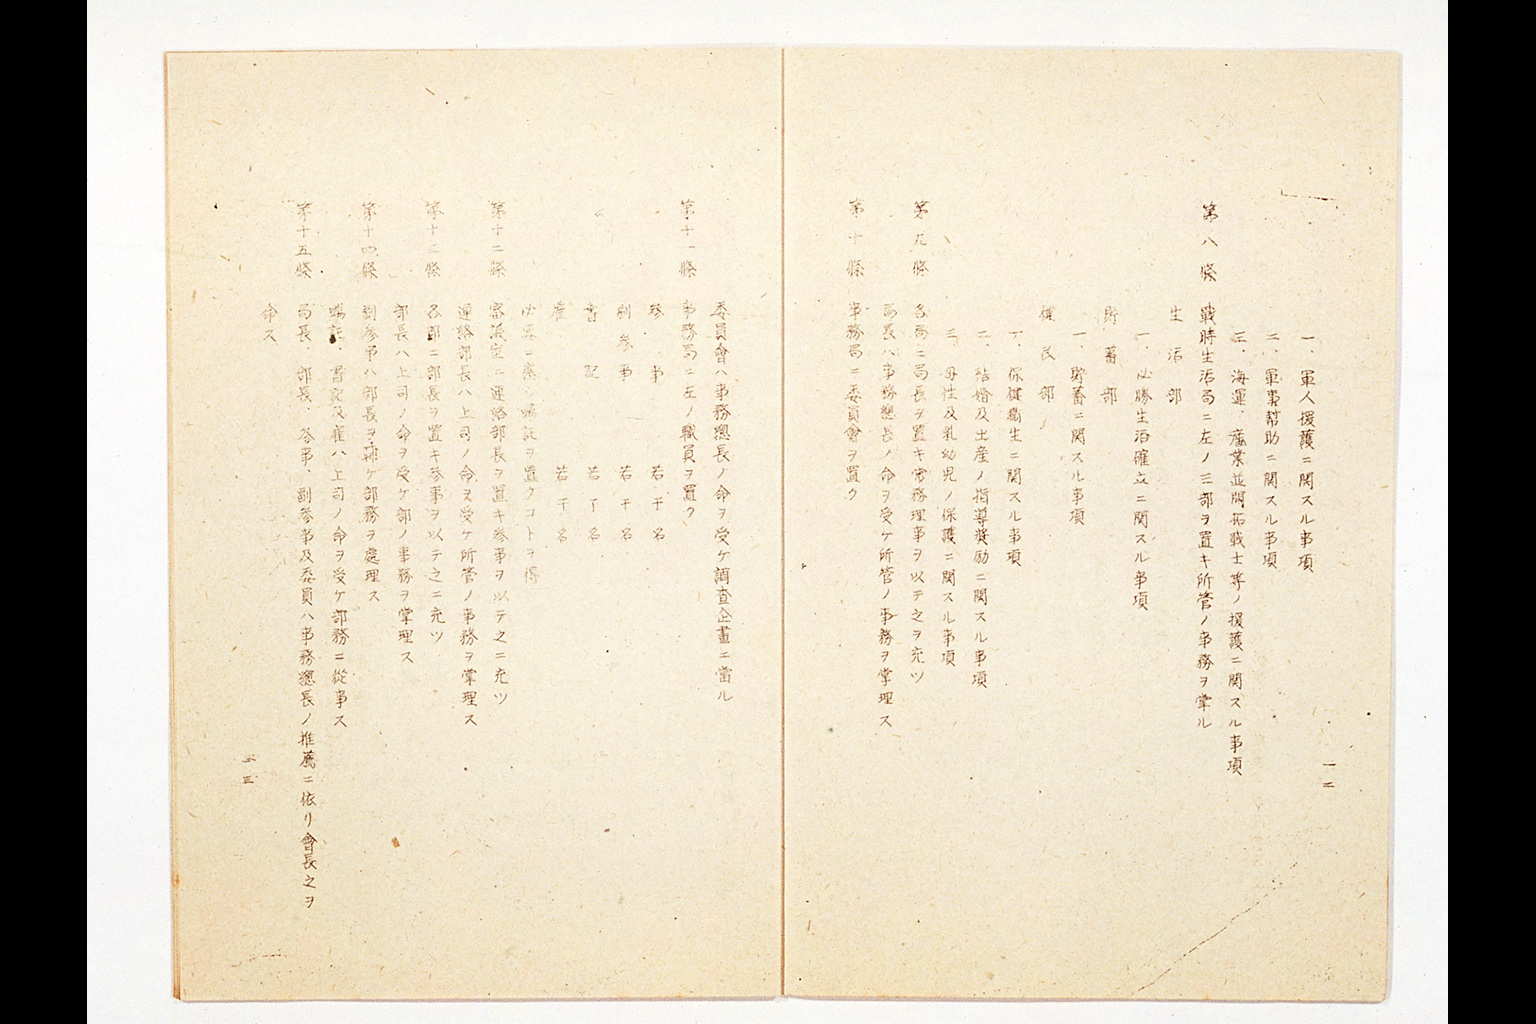 一、軍人援護ニ関スル事項
二、軍事幇助ニ関スル事項
三、海運、産業並開拓戰士等ノ援護ニ関スル事項
第八條 戰時生活局ニ左ノ三部ヲ置キ所管ノ事務ヲ掌ル
生活部
一、必勝生活確立ニ関スル事項
貯蓄部
一、貯蓄ニ関スル事項
健民部
一、保健衞生ニ関スル事項
二、結婚及出産ノ指導奬励ニ関スル事項
三、母性及乳幼児ノ保護ニ関スル事項
第九條 各局ニ局長ヲ置キ常務理事ヲ以テ之ヲ充ツ
局長ハ事務總長ノ命ヲ受ケ所管ノ事務ヲ掌理ス
第十條 事務局ニ委員會ヲ置ク
一二
委員會ハ事務總長ノ命ヲ受ケ調査企畫ニ當ル
第十一條 事務局ニ左ノ職員ヲ置ク
参事 若干名
副参事 若干名
書記 若干名
雇 若干名
必要ニ應ジ嘱託ヲ置クコトヲ得
第十二條 審議室ニ連絡部長ヲ置キ参事ヲ以テ之ニ充ツ
連絡部長ハ上司ノ命ヲ受ケ所管ノ事務ヲ掌理ス
第十三條 各部ニ部長ヲ置キ参事ヲ以テ之ニ充ツ
部長ハ上司ノ命ヲ受ケ部ノ事務ヲ掌理ス
第十四條 副参事ハ部長ヲ補ケ部務ヲ處理ス
嘱託、書記及雇ハ上司ノ命ヲ受ケ部務ニ從事ス
第十五條 局長、部長、参事、副参事及委員ハ事務總長ノ推薦ニ依リ會長之ヲ
命ス